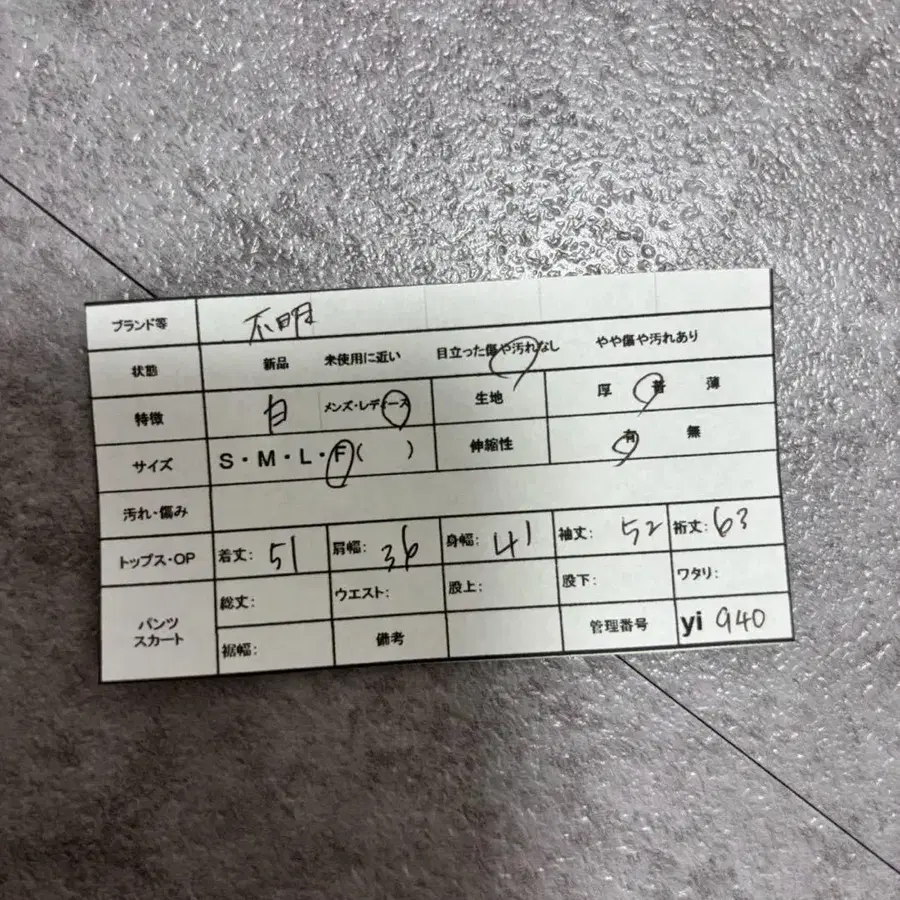 ブランド等 不明
状態 新品 未使用に近い 目立った傷や汚れなし やや傷や汚れあり
特徴 白 メンズ・レディース 生地 厚 普 薄
サイズ S・M・L・F( ) 伸縮性 有 無
汚れ・傷み
トップス・OP 着丈: 51 肩幅: 36 身幅: 41 袖丈: 52 裄丈: 63
パンツ スカート 総丈: ウエスト: 股上: 股下: ワタリ:
裾幅: 備考 管理番号 yi 940